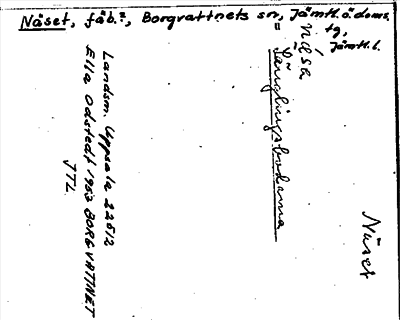 Näset, fäb.?, Borgvattnets sn, Jämtl. ö. doms.
tg,
Jämtl. l.
näsa
= Länglingsbodarna
Landsm. Uppsala 22512
Ella Odstedt 1953 BORGVATTNET
JTL
Näset